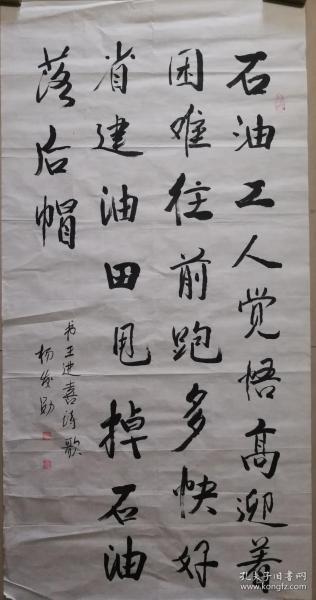 石油工人觉悟高迎着
困难往前跑多快好
省建油田甩掉石油
落后帽
书王进喜诗歌
杨发勋
孔夫子旧书网
www.kongfz.com